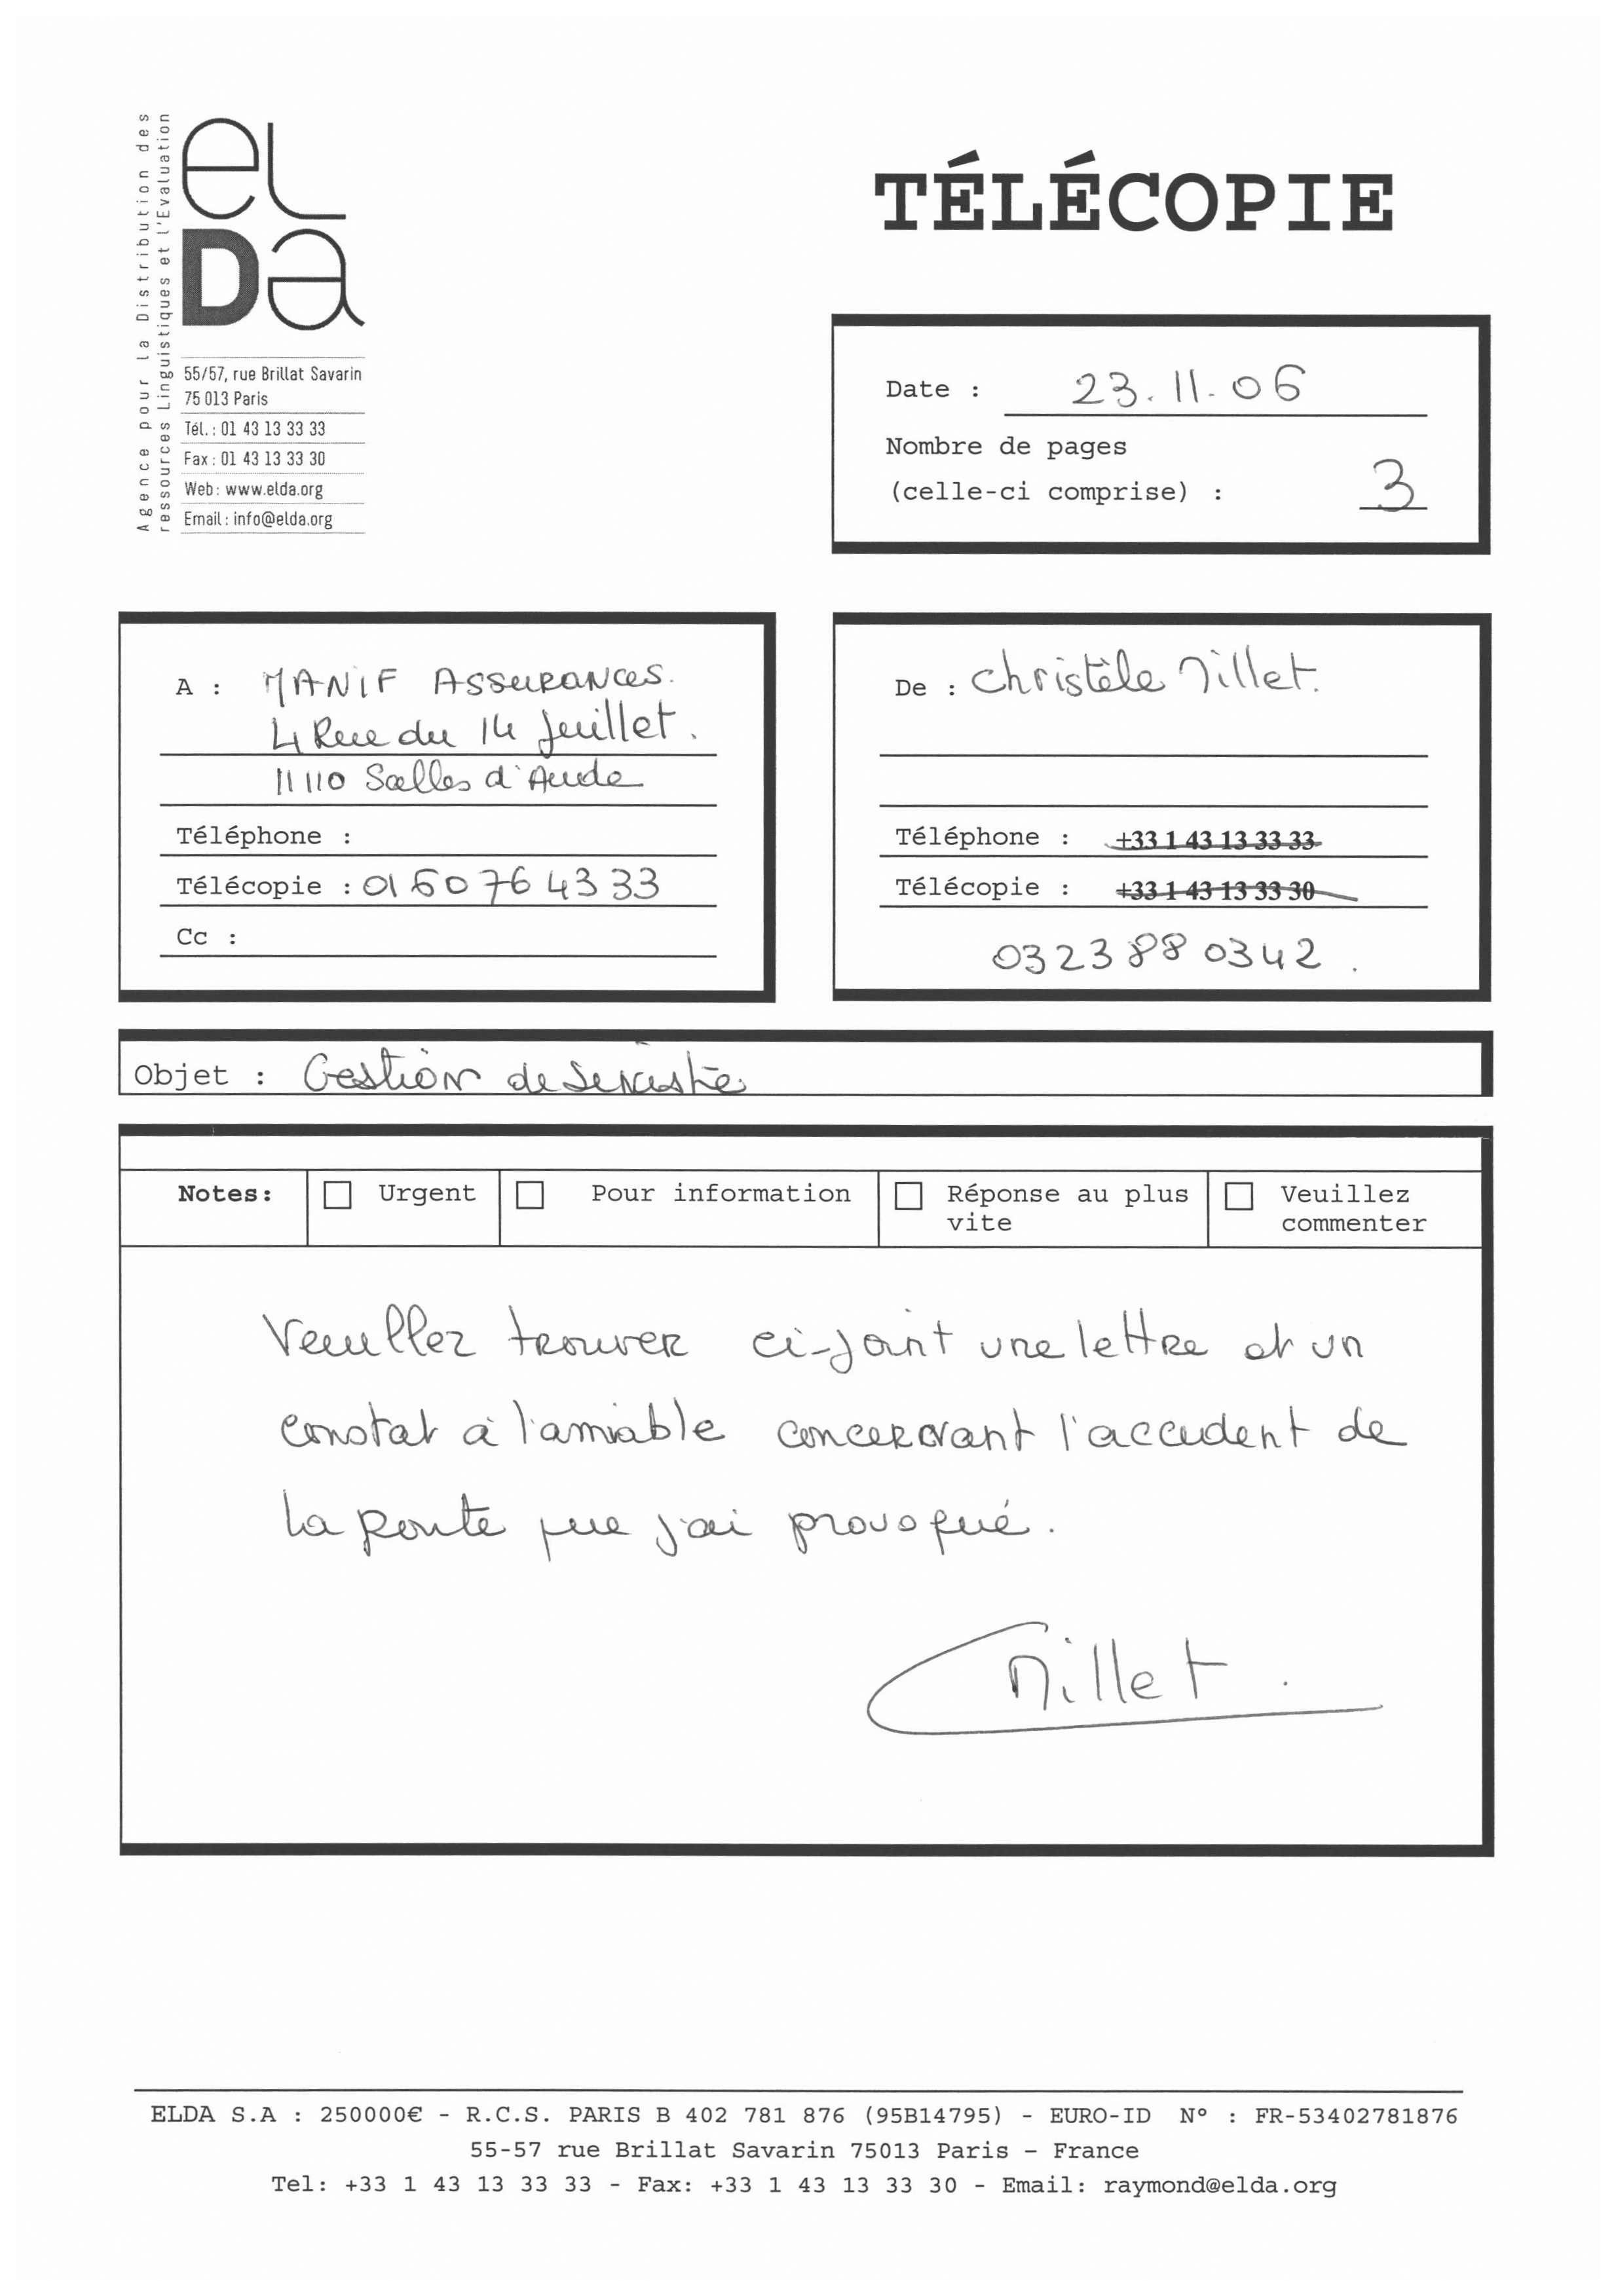 Agence pour la Distribution des
ressources Linguistiques et l'Evaluation
eL
Da
55/57, rue Brillat Savarin
75 013 Paris
Tél. : 01 43 13 33 33
Fax : 01 43 13 33 30
Web : www.elda.org
Email : info@elda.org
TÉLÉCOPIE
Date : 23.11.06
Nombre de pages
(celle-ci comprise) : 3
A : MANIF Assurances.
4 Rue du 14 Juillet.
11110 Salles d'Aude
Téléphone :
Télécopie : 01 60 76 43 33
Cc :
De : Christèle Millet.
Téléphone : +33 1 43 13 33 33
Télécopie : +33 1 43 13 33 30
0323880342.
Objet : Gestion de Sinistre
Notes: Urgent Pour information Réponse au plus vite Veuillez commenter
Veuillez trouver ci-joint une lettre et un
constat à l'amiable concernant l'accident de
la route que j'ai provoqué.
Millet.
ELDA S.A : 250000€ - R.C.S. PARIS B 402 781 876 (95B14795) - EURO-ID N° : FR-53402781876
55-57 rue Brillat Savarin 75013 Paris – France
Tel: +33 1 43 13 33 33 - Fax: +33 1 43 13 33 30 - Email: raymond@elda.org